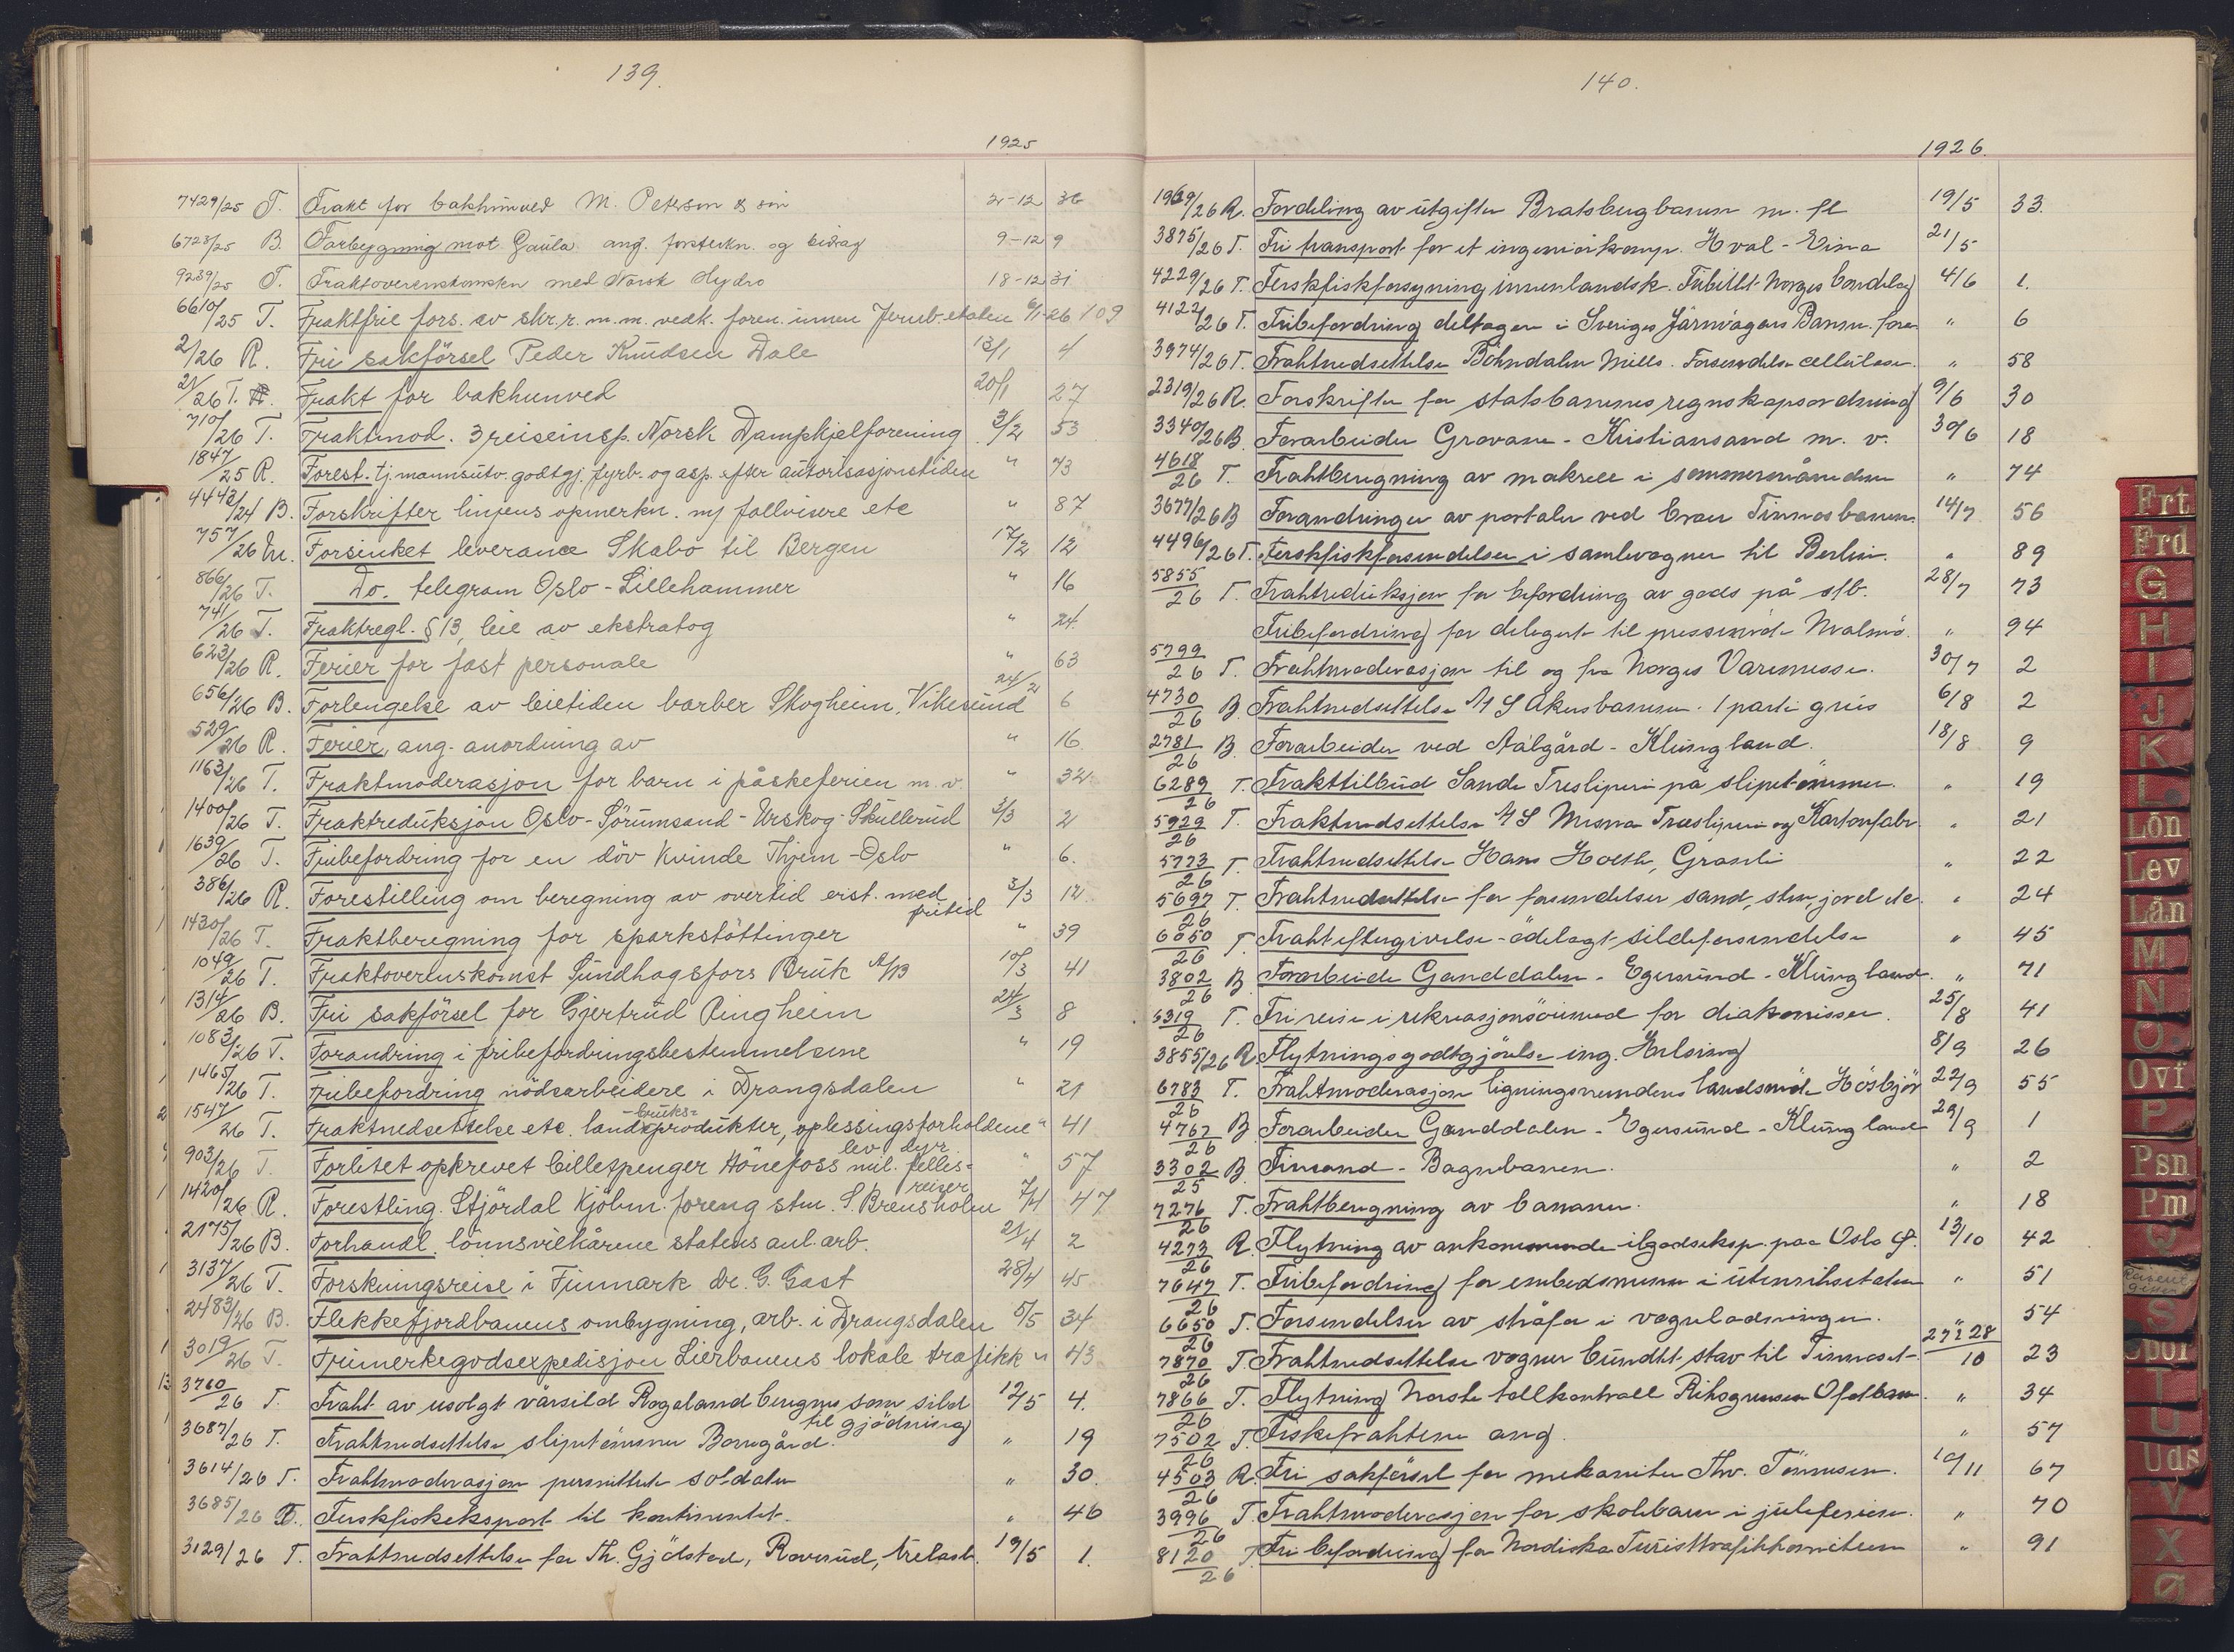 139.
1925
7429/25 T. Frakt for bakhunved M. Peterson & søn 2-12 36
6728/25 B. Forbygning mot Gaula ang. forsterkn. og bidrag 9-12 9
9239/25 T. Fraktoverenskomsten med Norsk Hydro 18-12 31
6610/25 T. Fraktfrie fors. av skr.r. m.m. vedk. foren. innen Jernb.etaten 6/1-26 109
2/26 R. Fri sakförsel Peder Knudsen Dale 13/1 4
21/26 T. Frakt for bakhunved 20/1 27
710/26 T. Fraktmod. 3 reiseinsp. Norsk Dampkjelforening 3/2 53
1847/25 R. Forest. tj.mannsutv. godtgj. fyrb. og asp. efter autorisasjonstiden " 73
4443/24 B. Forskrifter linjens opmerkn. ny follvisere etc " 87
757/26 M. Forsinket leveranse Skabo til Bergen 17/2 12
866/26 T. Do. telegram Oslo - Lillehammer " 16
741/26 T. Fraktregl. § 13, leie av ekstratog " 24
623/26 R. Ferier for fast personale " 63
656/26 B. Forlengelse av leietiden barber Skogheim, Vikesund 24/2 6
529/26 R. Ferier, ang. anordning av " 16.
1163/26 T. Fraktmoderasjon for barn i påskeferien m.v. " 32
1400/26 T. Fraktreduksjon Oslo - Sörumsand - Urskog - Skullerud 3/3 2
1639/26 T. Fribefordring for en döv kvinde Thjem - Oslo " 6.
386/26 R. Forestilling om beregning av overtid erst. med fritid 3/3 12
1430/26 T. Fraktberegning for sparkstöttinger " 39
1049/26 T. Fraktoverenskomst Sundhagsfors Bruk A/B 10/3 41
1314/26 B. Fri sakförsel for Gjertrud Ringheim 24/3 8
1083/26 T. Forandring i fribefordringsbestemmelsene " 19
1465/26 T. Fribefordring nödsarbeidere i Drangsdalen " 21
2 1547/26 T. Fraktnedsettelse etc. landbruksprodukter, oplessingsforholdene lev. dyr " 41
903/26 T. Forlitet opkrevet billetpenger Hönefoss mil. fellesreiser " 57
1 1420/26 R. Forestling. Stjördal Kjöbm.foreng stm. S. Brensholm 7/4 47
2175/26 B. Forhandl. lönnsvilkårene statens anl.arb. 21/4 2
1 3137/26 T. Forskningsreise i Finmark dr. G. Gast 28/4 45
2483/26 B. Flekkefjordbanens ombygning, arb. i Drangsdalen 5/5 34
1 3019/26 T. Frimerkegodsexpedisjon Lierbanens lokale trafikk " 43
13 3760/26 T. Fraht av usolgt vårsild Rogaland beregnes som sild til gjödning 12/5 4.
3687/26 T. Frahtnedsettelse sliptömmer Borregård. " 19
3614/26 T. Frahtmoderasjon permitterte soldater " 30.
3685/26 T. Ferskfiskeksport til kontinentet. " 46
3129/26 T. Frahtnedsettelse for Th. Gjölstad, Roverud, trelast. 19/5 1.
140.
1926.
1969/26 R. Fordeling av utgifter Bratsbergbanen m. fl 19/5 33.
3875/26 T. Fri transport for et ingeniörkomp. Hval - Eina 21/5
4229/26 T. Ferskfiskforsyning innenlandsk. Fribillet Norges Bondelag 4/6 1.
4122/26 T. Fribefordring deltagere i Sveriges Järnvägars Banm. fören " 6
3974/26 T. Frahtnedsettelse Böhnsdalen Mills. Forsendelse cellulose. " 58
2319/26 R. Forskrifter for statsbanenes regnskapsordning 9/6 30
3340/26 B Forarbeider Grovane - Kristiansand m. v. 30/6 18
4618/26 T. Frahtberegning av makrell i sommermånedene " 74
3677/26 B Forandringer av portaler ved broer Tinnosbanen. 14/7 56
4496/26 T. Ferskfiskforsendelser i samlevogner til Berlin. " 89
5855/26 T. Frahtreduksjon for befordring av gods på stb. 28/7 73
Fribefordring for delegerte til pressemöte Malmö. " 94
5799/26 T. Frahtmoderasjon til og fra Norges Varemesse. 30/7 2
4730/26 B. Frahtnedsettelse A/S Akersbanerne. 1 parti grus 6/8 2
2781/26 B. Forarbeider ved Aalgård - Klungland. 18/8 9
6289/26 T. Frakttilbud Sande Tresliperi på sliptömmer. " 19
5929/26 T. Fraktnedsettelse A/S Mesna Træsliperi og Kartonfabr. " 21
5773/26 T. Frahtnedsettelse Hans Hoeth, Granli " 22
5697/26 T. Frahtnedsettelse for forsendelser sand, sten, jord etc. " 24
6050/26 T Frahtettergivelse - ödelagt sildeforsendelse " 45
3802/26 B Forarbeide Ganddalen - Egersund - Klungland. " 71
6319/26 T. Fri reise i rekreasjonsöiemed for diakonisser. 25/8 41
3855/26 R. Flytningsgodtgjörelse ing. Helsing 8/9 26
6783/26 T. Frahtmoderasjon ligningsnemdens landsmöte Hösbjör 22/9 55
4767/26 B Forarbeider Ganddalen - Egersund - Klungland 29/9 1
3302/25 B. Finsand - Bagnbanen. " 2
7276/26 T. Frahtberegning av bananer. " 18
4273/26 R. Flytning av ankommende ilgodseksp. paa Oslo Ö. 13/10 42
7647/26 T. Fribefordring for embedsmenn i utenriksetaten " 51
6650/26 T. Forsendelser av stråfor i vognladninger. " 54
7870/26 T Frahtnedsettelse vogner bundtet stav til Tinnoset 27 & 28/10 23
7866/26 T. Flytning Norske tollkontroll Riksgrensen Ofotban. " 34
7502/26 T. Fiskefrahtene ang. " 57
4503/26 R. Fri sakförsel for mekaniker Thv. Tönnesen. 10/11 67
3996/26 T. Frahtmoderasjon for skolebarn i juleferien. " 70
8120/26 T. Fri befordring for Nordiska Turisttrafikkomiteen " 91
Frt
Frd
G
H
I
J
K
L
Lön
Lev
Lån
M
N
O
Ovf
P
Psn
Pm
Q
S
Spor
T
U
Uds
V
X
Ø